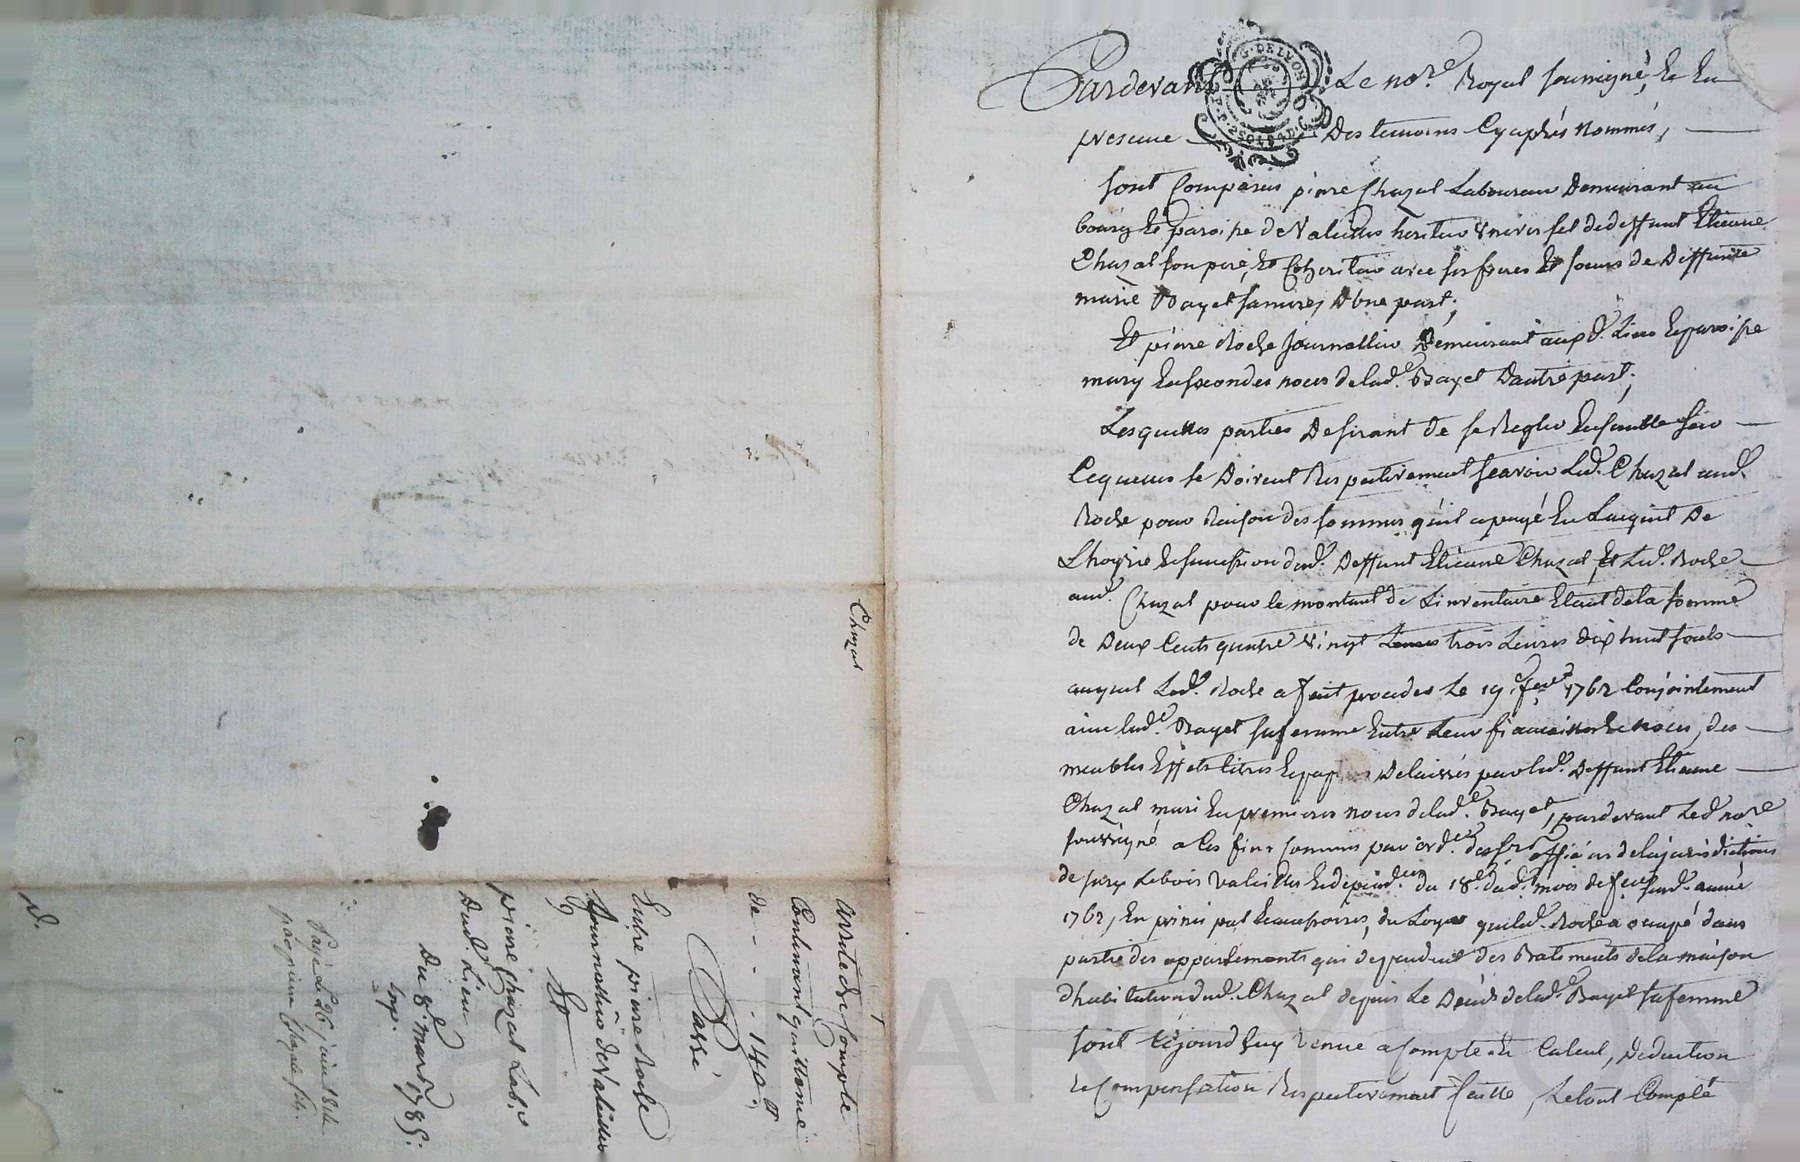 Pardevant Le no.re Royal soussigné, Et En
presence Des temoins Cy aprés nommés,
sont Comparus piere Chazal Laboureur Demeurant au
bourg Et paroisse de Valeilles heritier Universel de deffunt Etienne
Chazal son pere, Et Coheritier avec ses freres Et soeurs de Deffunte
marie Bayet sa mere, D'Une part;
Et piere Roche Journallier Demeurant auxd. Lieu Et paroisse
mary En secondes noces de lad.e Bayet D'autre part;
Lesquelles parties Desirant de se Regler Ensemble sur
Ce qu'elles se Doivent Respectivement scavoir Led. Chazal aud.
Roche pour Raison des sommes qu'il a payé En L'acquit De
L'hoyrie Et succession dud. Deffunt Etienne Chazal Et Led. Roche
aud. Chazal pour le montant de L'inventaire Etant de la somme
de Deux Cents quatre Vingt trois Livres dix huit sols
auquel Led. Roche a fait proceder Le 19 fevr 1762 Conjointement
avec lad.e Bayet sa femme Entre Leur fiancailles Et noces, des
meubles Effets titres Et papiers Delaissés par led. Deffunt Etienne
Chazal mari En premieres noces de lad.e Bayet, pardevant Led. no.re
soussigné a Ces fins Commis par ord.ce des srs officiers de la jurisdiction
de Sury Lebois Valeilles Et depend.ces du 18.e dud. mois de fevr sud. année
1762, En principal Et accessoires, du Loyer que led. Roche a occupé dans
partie des appartements qui dependent des Batiments de la maison
d'habitation dud. Chazal depuis Le Décés de lad.e Bayet sa femme
sont Cejourd'huy Venue a Compte Et Calcul, Deduction
Et Compensation Respectivement faitte, Le tout Compté
Chazal
arreté de Compte
Contenant quittance
de - - - 140 tt
Passé
Entre piere Roche
Journallier de Valeilles
Et
piere Chazal Lab.r
Dud. Lieu
Du 8.e mars 1785.
Exp.
Payé Le 26 juin 1814